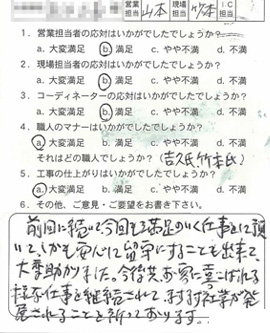 営業担当 山本 現場担当 竹本 IC担当
1. 営業担当者の応対はいかがでしたでしょうか?
a. 大変満足 b. 満足 c. やや不満 d. 不満
2. 現場担当者の応対はいかがでしたでしょうか?
a. 大変満足 b. 満足 c. やや不満 d. 不満
3. コーディネーターの応対はいかがでしたでしょうか?
a. 大変満足 b. 満足 c. やや不満 d. 不満
4. 職人のマナーはいかがでしたでしょうか?
a. 大変満足 b. 満足 c. やや不満 d. 不満
それはどの職人でしょうか?(吉久氏 竹本氏)
5. 工事の仕上がりはいかがでしたでしょうか?
a. 大変満足 b. 満足 c. やや不満 d. 不満
6. その他、ご意見・ご要望をお書き下さい。
前回に続いて今回も満足のいく仕事をして頂
いて、しかも安心して留守にすることも出来て、
大変助かりました。今後共、お客に喜こばれる
様な仕事を継続されて、ますます社業が発
展されることを祈っております。